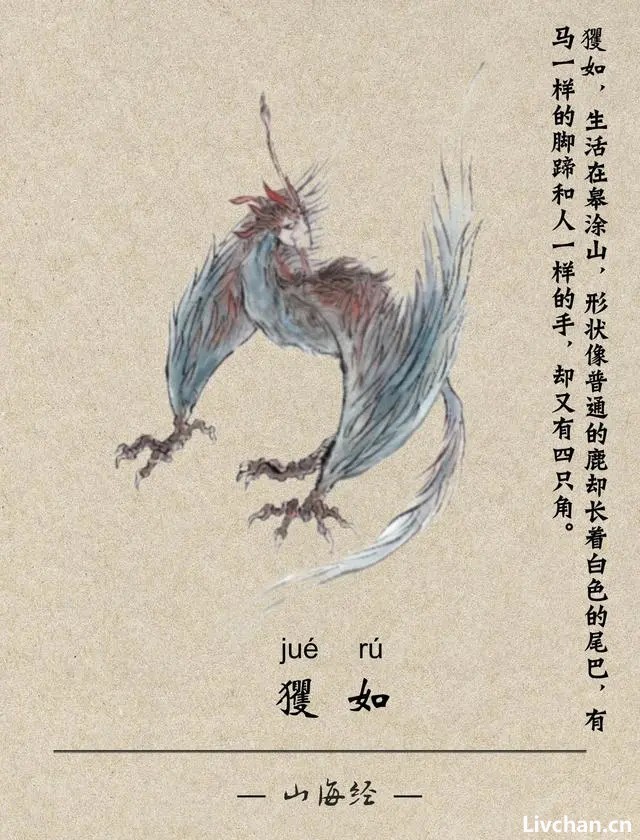 玃如，生活在皋涂山，形状像普通的鹿却长着白色的尾巴，有
马一样的脚蹄和人一样的手，却又有四只角。
jué rú
玃如
— 山海经 —
Livchan.cn